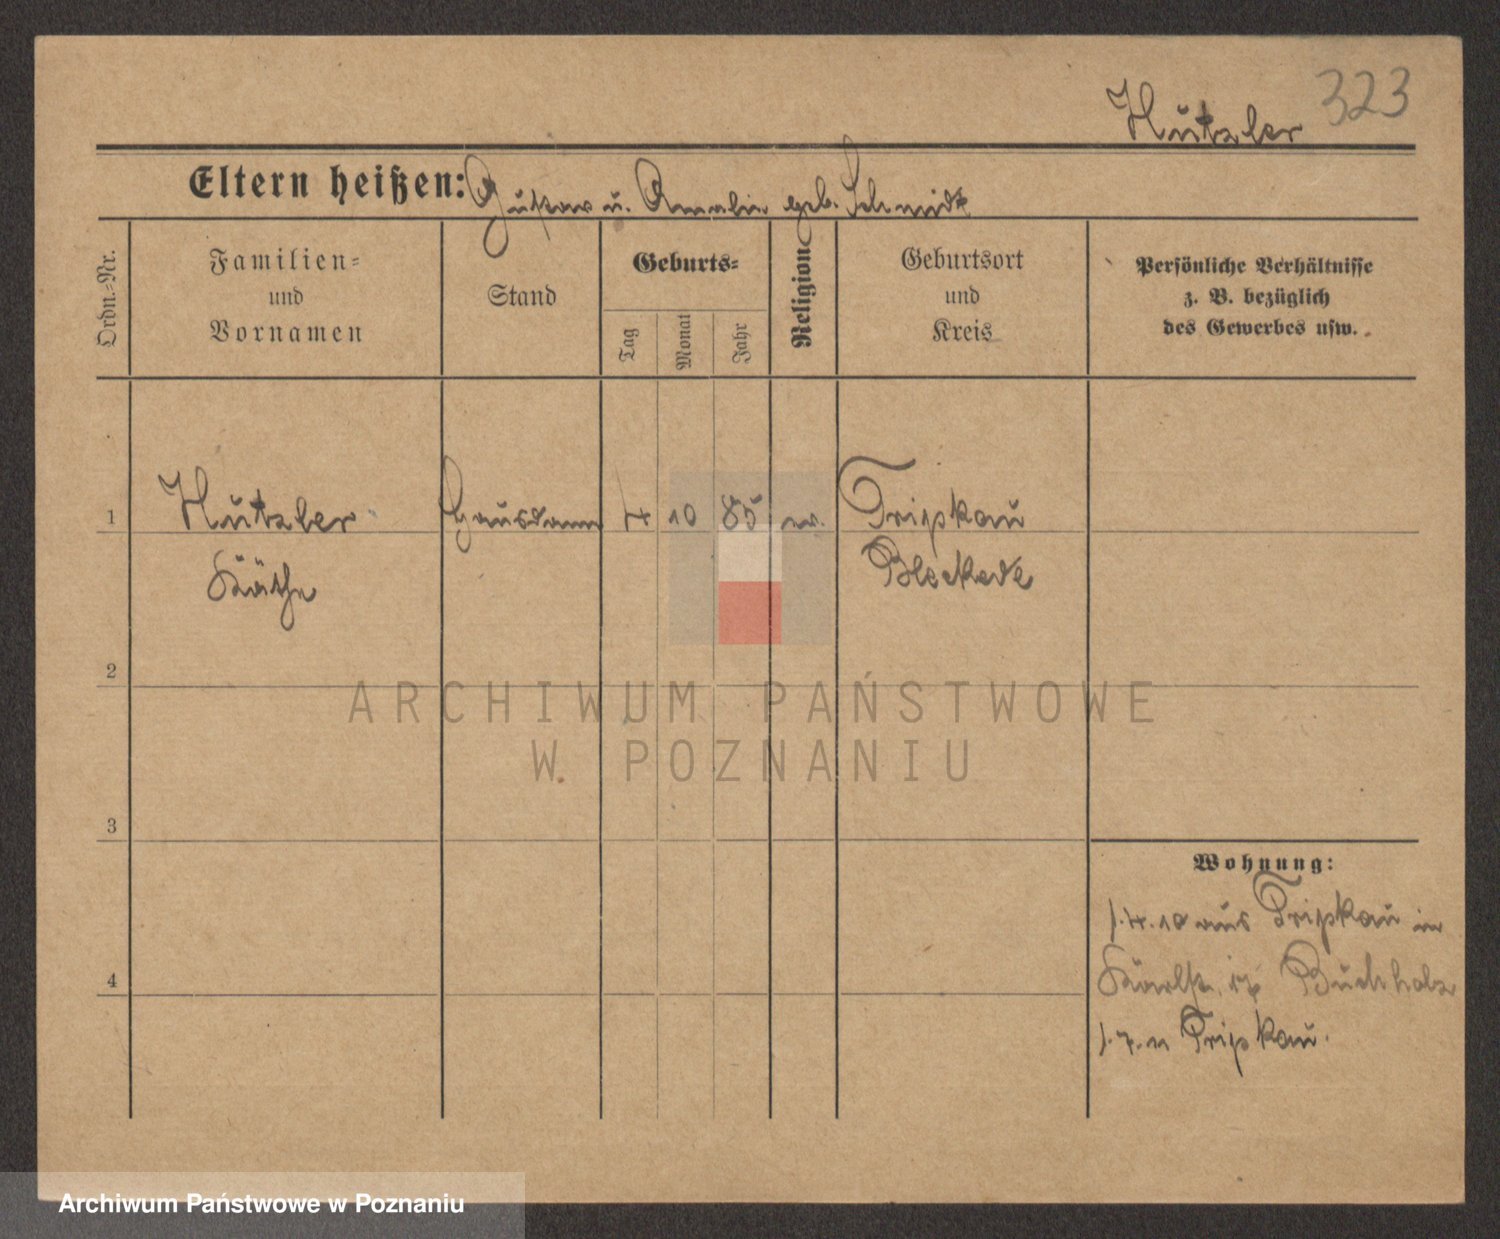 Hützler 323
Eltern heißen: Gustav u. Amalie geb. Schmidt
Ordn.-Nr.
Familien-
und
Vornamen
Stand
Geburts-
Tag
Monat
Jahr
Religion
Geburtsort
und
Kreis
Persönliche Verhältnisse
z. B. bezüglich
des Gewerbes usw.
1 Hützler Hausdame 4 10 85 ev. Tripkau
Käthe Bleckede
2
ARCHIWUM PAŃSTWOWE
W POZNANIU
3
Wohnung:
1.4.10 aus Tripkau in
Buchholz
4
1.7.11 Tripkau.
Archiwum Państwowe w Poznaniu